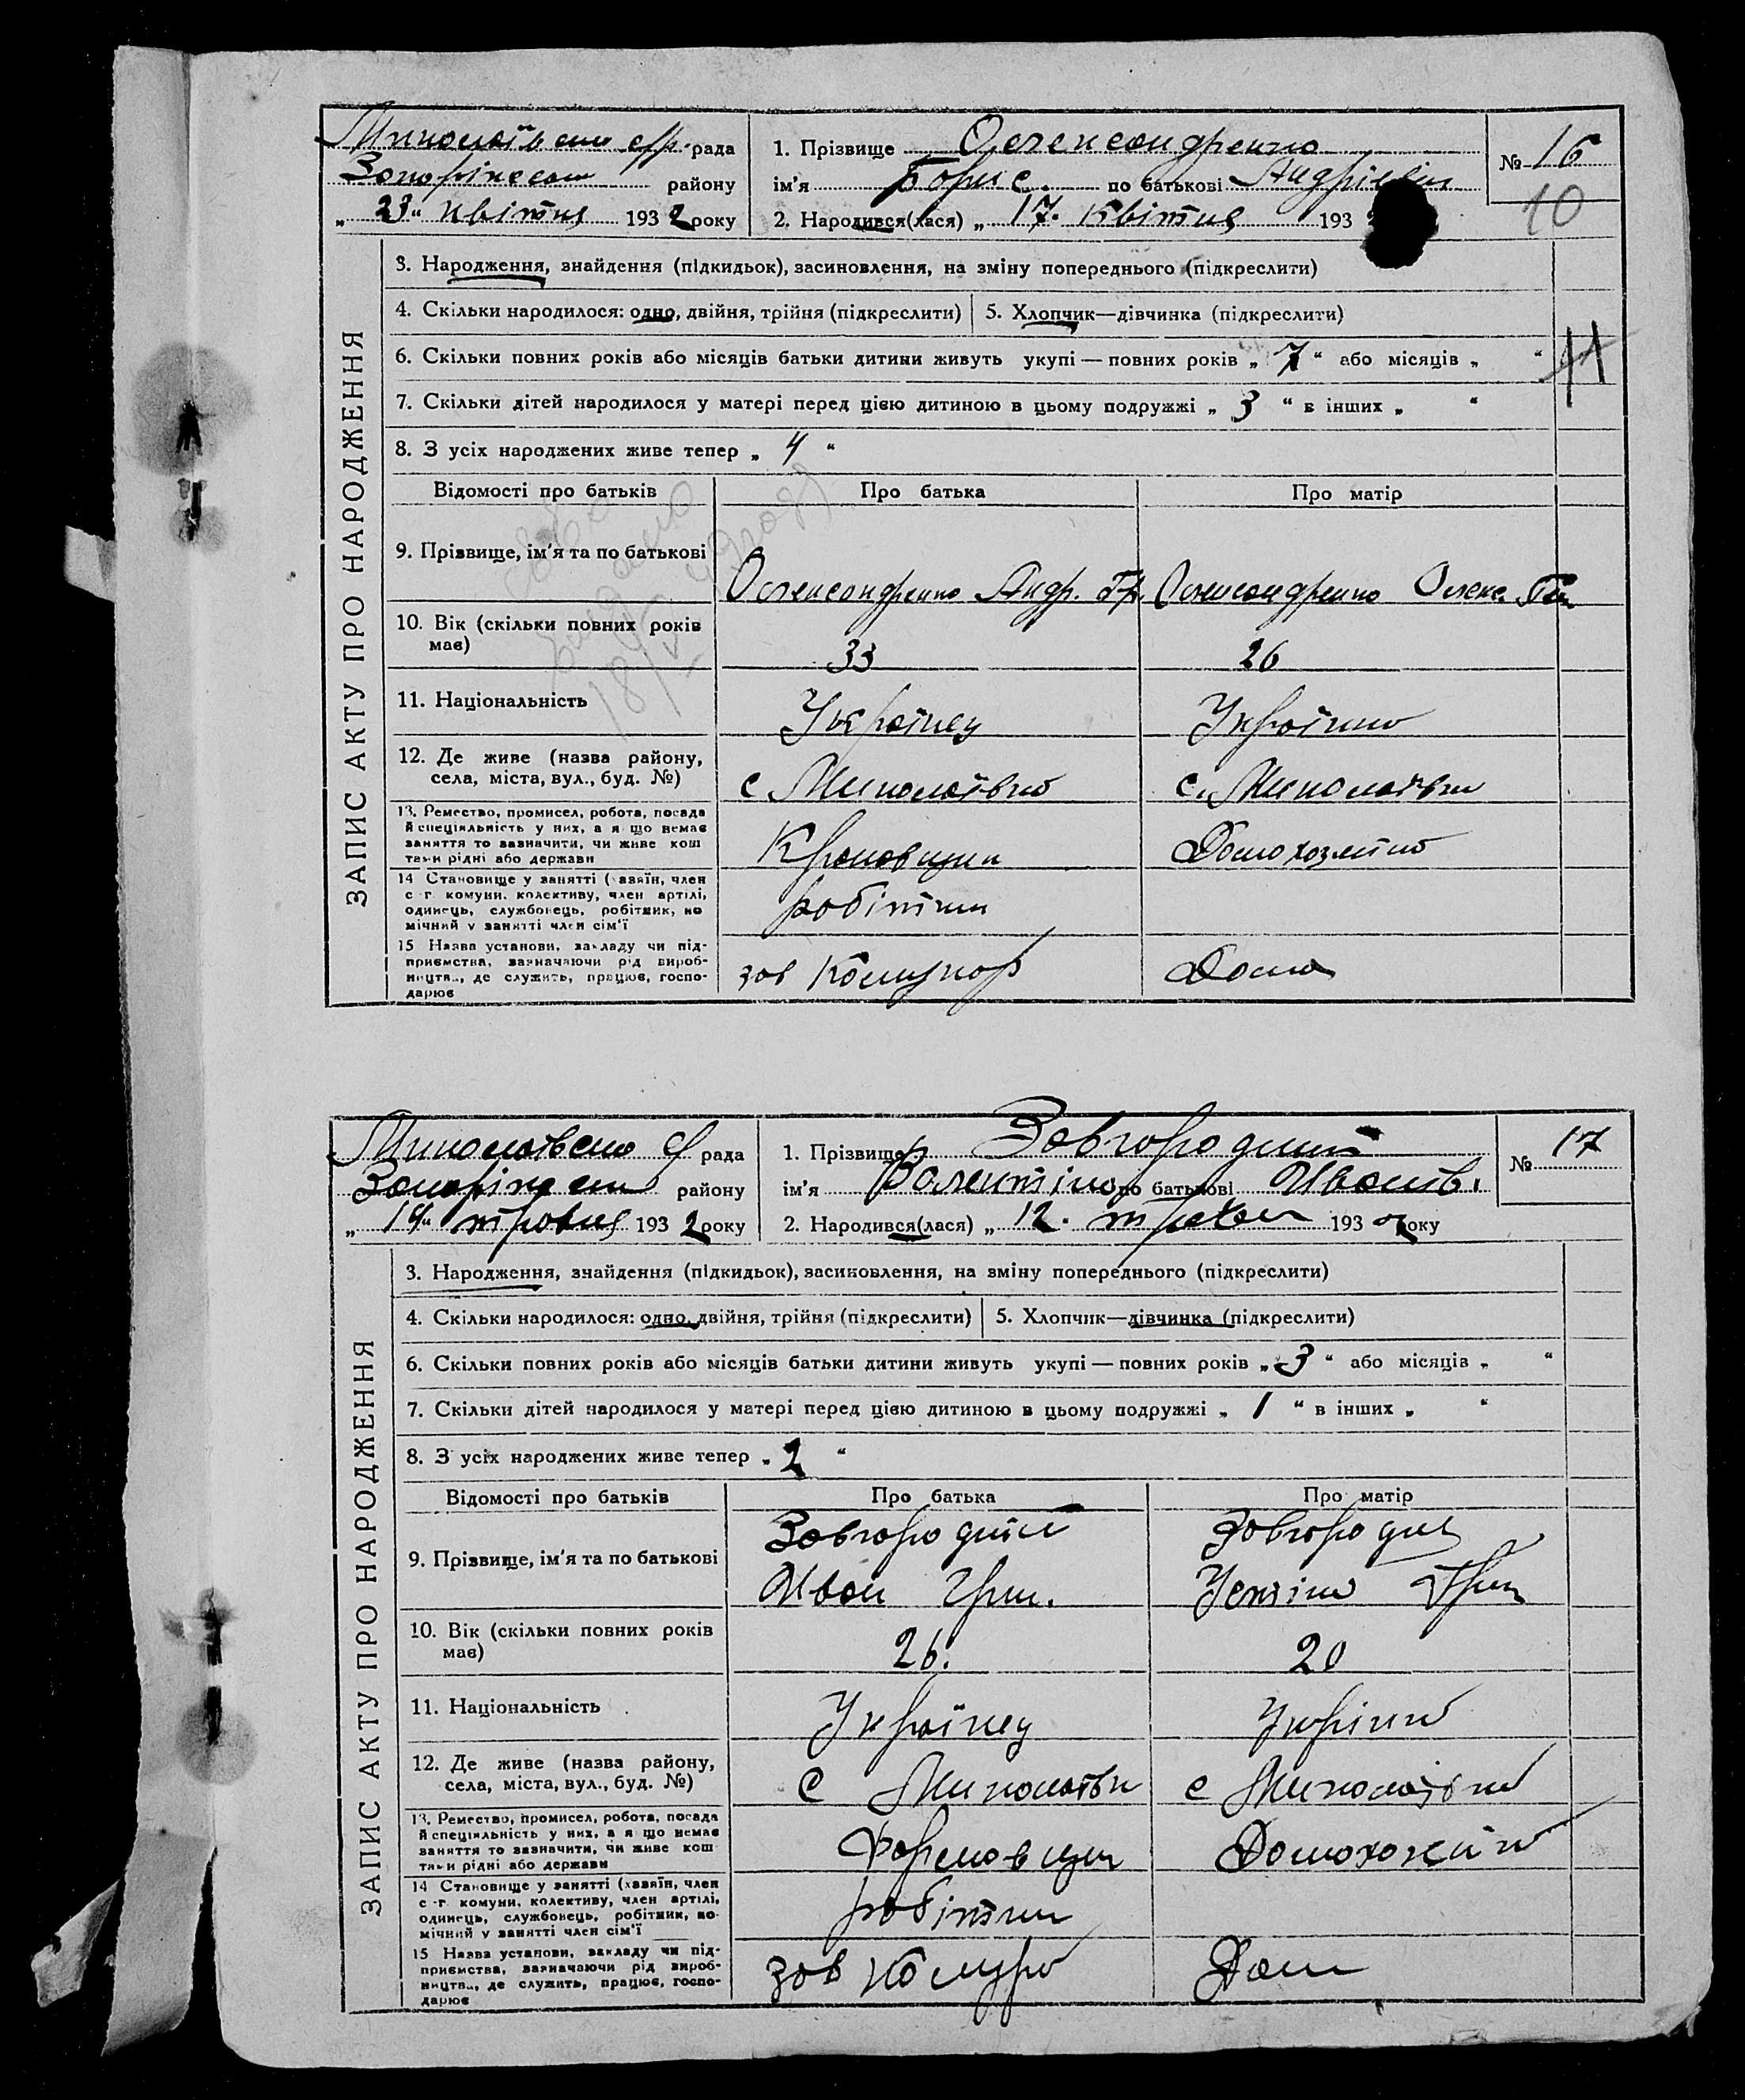 Миколаївська с/р. рада
Запорізького району
„ 23 " квітня 1932 року
1. Прізвище Олександренко
ім'я Борис. по батькові Андрієвич
2. Народився(лася) „ 17. квітня 193
№ 16
10
ЗАПИС АКТУ ПРО НАРОДЖЕННЯ
3. Народження, знайдення (підкидьок), засиновлення, на зміну попереднього (підкреслити)
4. Скільки народилося: одно, двійня, трійня (підкреслити)
5. Хлопчик—дівчинка (підкреслити)
6. Скільки повних років або місяців батьки дитини живуть укупі — повних років „ 7 " або місяців „ "
7. Скільки дітей народилося у матері перед цією дитиною в цьому подружжі „ 3 " в інших „ "
8. З усіх народжених живе тепер „ 4 "
Відомості про батьків
Про батька
Про матір
9. Прізвище, ім'я та по батькові
Олександренко Андр. Гр.
Олександренко Олекс.
10. Вік (скільки повних років
має)
33
26
11. Національність
Українец
Українка
12. Де живе (назва району,
села, міста, вул., буд. №)
с Миколаївка
с. Миколаївка
13. Ремество, промисел, робота, посада
й спеціяльність у них, а я що немає
заняття то зазначити, чи живе кош
тами рідні або держави
Кроновщик
Домохозяйка
14 Становище у занятті (хазяїн, член
с-г. комуни, колективу, член артілі,
одинець, службовець, робітник, по
мічний у занятті член сім'ї
робітник
15 Назва установи, закладу чи під-
приємства, зазначаючи рід вироб-
ництва, де служить, працює, госпо-
дарює
зав Комунар
Дома
Миколаївська с/р рада
Запорізького району
„ 14 " травня 1932 року
1. Прізвище Завгородній
ім'я Валентіна по батькові Иванів.
2. Народився(лася) „ 12. травня 1932 року
№ 17
ЗАПИС АКТУ ПРО НАРОДЖЕННЯ
3. Народження, знайдення (підкидьок), засиновлення, на зміну попереднього (підкреслити)
4. Скільки народилося: одно, двійня, трійня (підкреслити)
5. Хлопчик—дівчинка (підкреслити)
6. Скільки повних років або місяців батьки дитини живуть укупі — повних років „ 3 " або місяців „ "
7. Скільки дітей народилося у матері перед цією дитиною в цьому подружжі „ 1 " в інших „ "
8. З усіх народжених живе тепер „ 2 "
Відомості про батьків
Про батька
Про матір
9. Прізвище, ім'я та по батькові
Завгородній
Иван Гри.
Завгородня
Устіна Гри
10. Вік (скільки повних років
має)
26.
20
11. Національність
Українец
Українка
12. Де живе (назва району,
села, міста, вул., буд. №)
с Миколаївка
с Миколаївка
13. Ремество, промисел, робота, посада
й спеціяльність у них, а я що немає
заняття то зазначити, чи живе кош
тами рідні або держави
Формовщик
Домохозяйка
14 Становище у занятті (хазяїн, член
с-г. комуни, колективу, член артілі,
одинець, службовець, робітник, по-
мічний у занятті член сім'ї
робітник
15 Назва установи, закладу чи під-
приємства, зазначаючи рід вироб-
ництва, де служить, працює, госпо-
дарює
зав Комунар
Дома